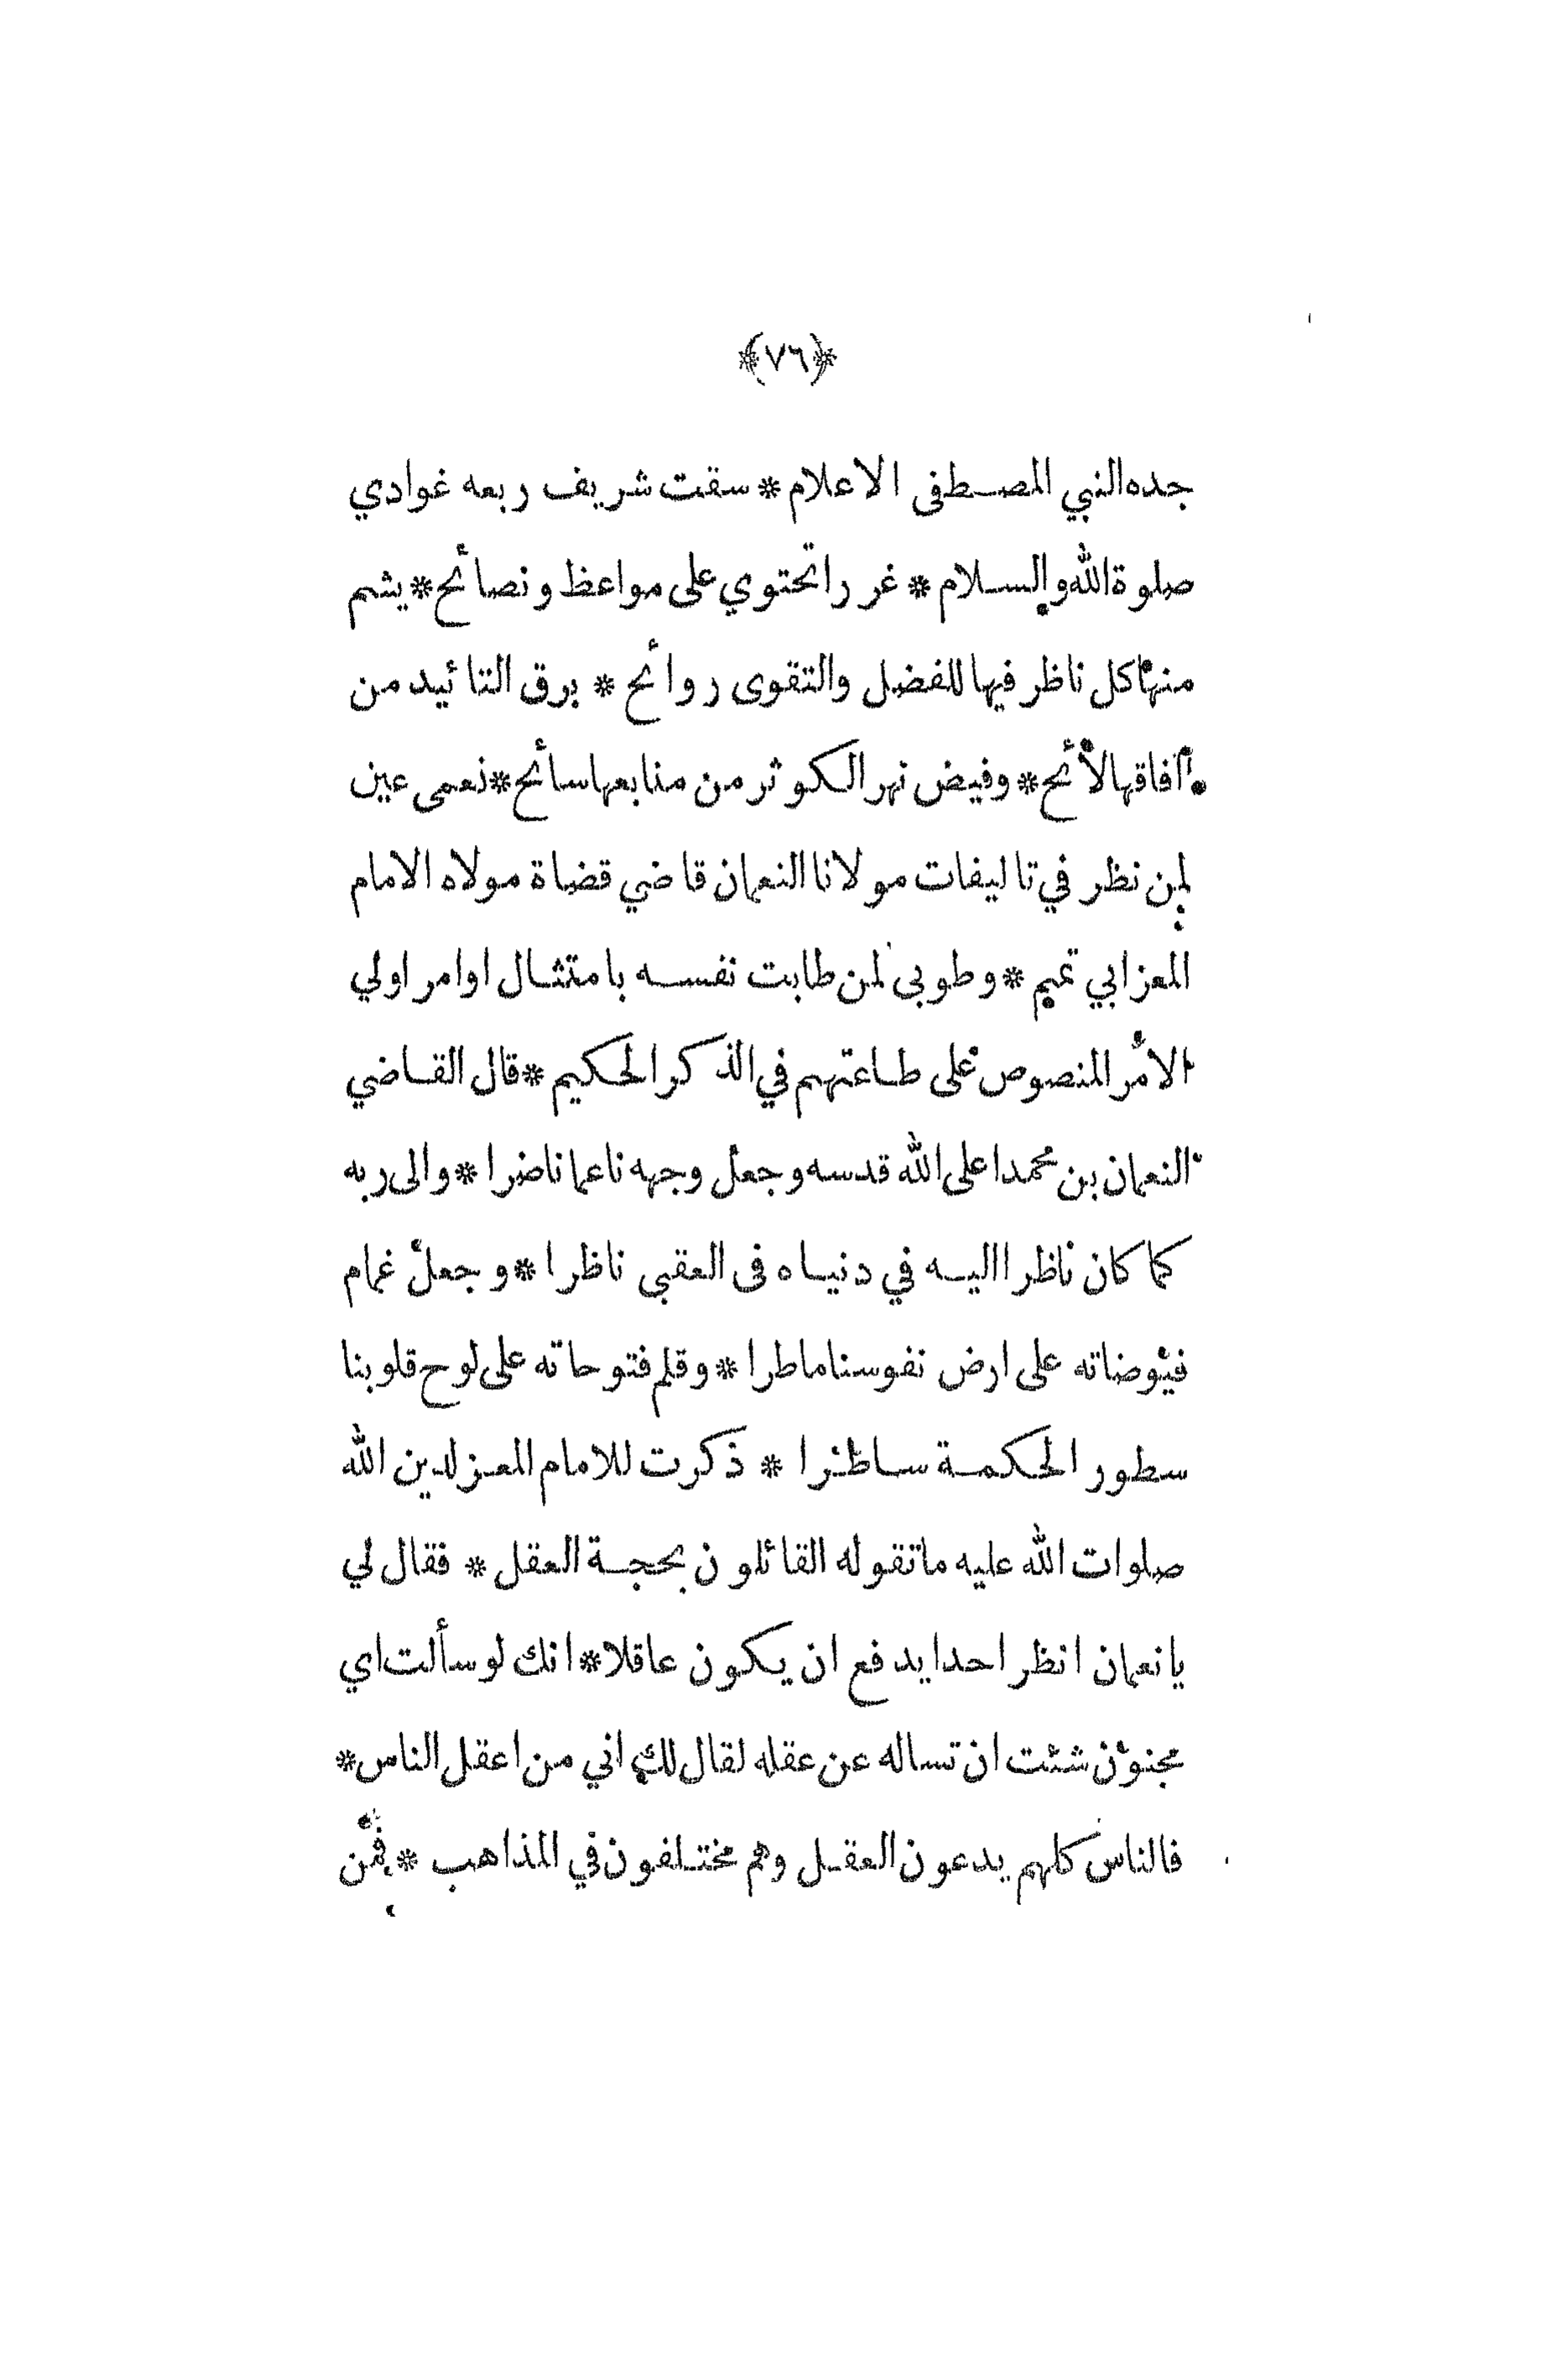 ﴿٧٦﴾
جده النبي المصطفى الاعلام * سقت شريف ربعه غوادي
صلوة الله والسلام * غررا تحتوي على مواعظ ونصائح * يشم
منها كل ناظر فيها للفضل والتقوى روائح * برق التائيد من
آفاقها لائح * وفيض نهر الكوثر من منابعها سائح * نعمى عين
لمن نظر في تاليفات مولانا النعمان قاضي قضاة مولاه الامام
المعز ابي تميم * وطوبى لمن طابت نفسه بامتثال اوامر اولي
الامر المنصوص على طاعتهم في الذكر الحكيم * قال القاضي
النعمان بن محمد اعلى الله قدسه وجعل وجهه ناعما ناضرا * والى ربه
كما كان ناظرا اليه في دنياه فى العقبى ناظرا * وجعل غمام
فيوضاته على ارض نفوسنا ماطرا * وقلم فتوحاته على لوح قلوبنا
سطور الحكمة ساطرا * ذكرت للامام المعز لدين الله
صلوات الله عليه ما تقوله القائلون بحجة العقل * فقال لي
يا نعمان انظر احدا يدفع ان يكون عاقلا * انك لو سألت اي
مجنون شئت ان تساله عن عقله لقال لك اني من اعقل الناس *
فالناس كلهم يدعون العقل وهم مختلفون في المذاهب * فمن